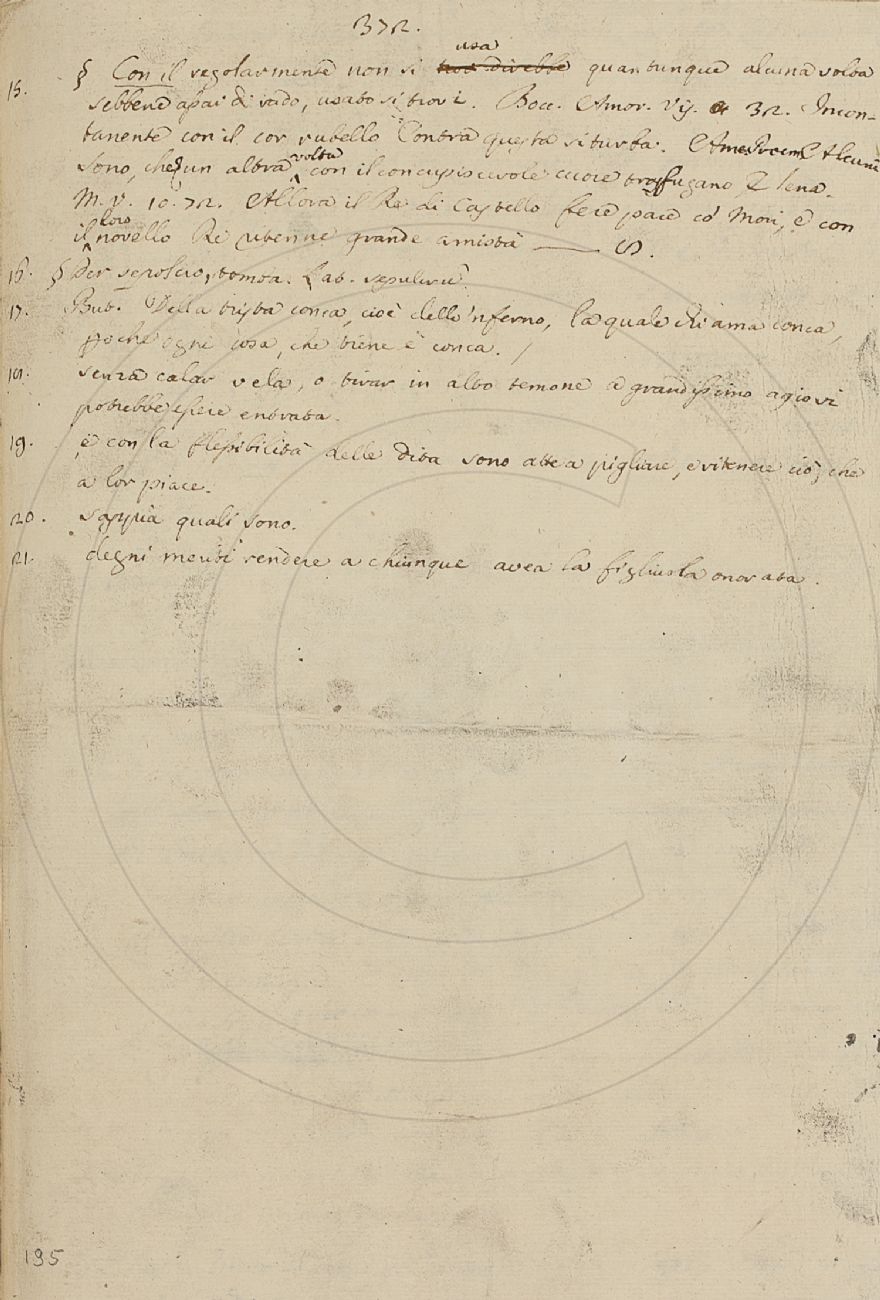 372.
usa
15. § Con il regolarmente non si direbbe quantunque alcuna volta
sebbene assai di rado, usato si trovi. Bocc. Amor. Vis. 32. Incon-
tanente con il cor rubello Contra questa si turba. Alcuni
volta
sono, che un altra con il concupiscevole cuore trasfugano Elena.
M. V. 10. 72. Allora il Re di Castello fece pace co' Mori, e con
loro
il novello Re ritenne grande amistà S.
16. § Per sepolcro, tomba. Lat. sepulcrum.
17. But. Della trista conca, cioè dello 'nferno, la quale chiama conca,
perchè ogni cosa, che tiene è conca. /
18. senza calar vela, o tirar in alto temone a grandissimo agio vi
potrebbe essere entrata.
19. e con la flessibilità delle dita sono atte a pigliare, e ritenere ciò, che
a lor piace.
20. sappia quali sono.
21. degni meriti rendere a chiunque avea la figliuola onorata.
195